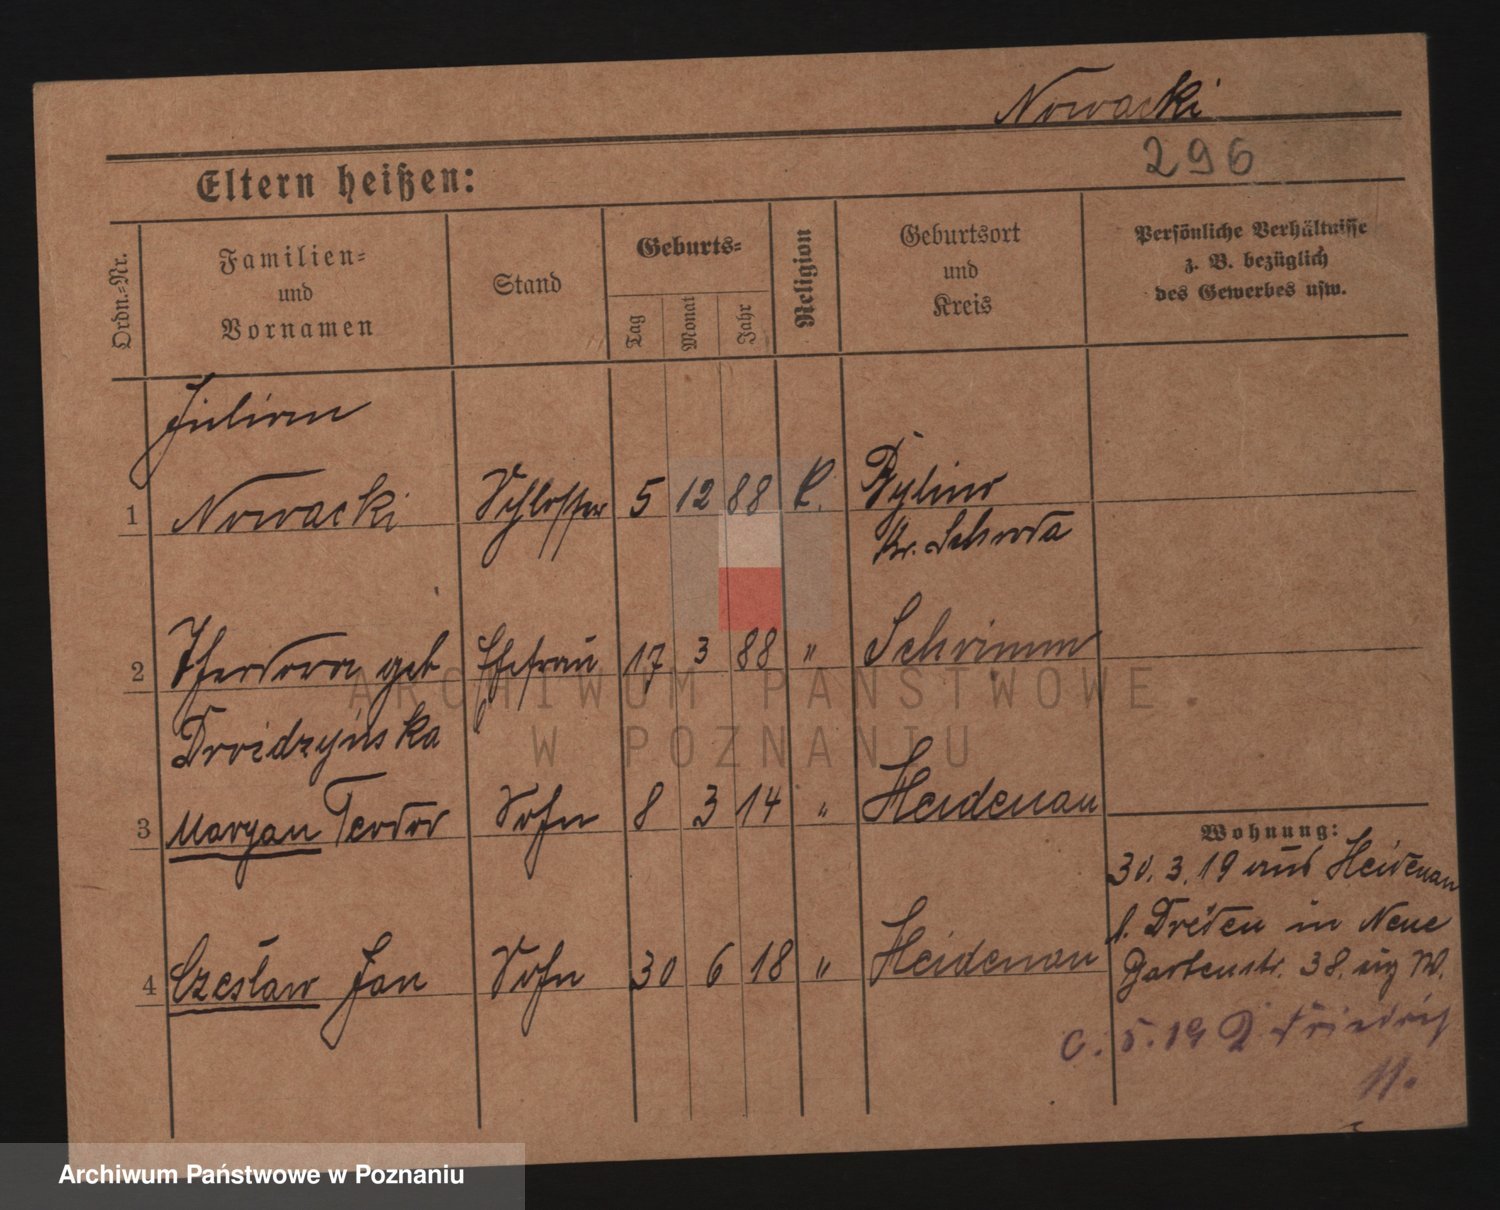 Nowacki
296
Eltern heißen:
Ordn.-Nr.
Familien-
und
Vornamen
Stand
Geburts-
Tag
Monat
Jahr
Religion
Geburtsort
und
Kreis
Persönliche Verhältnisse
z. B. bezüglich
des Gewerbes usw.
Julian
1 Nowacki Schlosser 5 12 88 k.
Kr. Schroda
2 Theodora geb Ehefrau 17 3 88 " Schrimm
Drożdzyńska
3 Maryan Teodor Sohn 8 3 14 " Heidenau
4 Czesław Jan Sohn 30 6 18 " Heidenau
Wohnung:
30. 3. 19 aus Heidenau
in Neue
Gartenstr. 38.
5. 19
11.
ARCHIWUM PAŃSTWOWE
W POZNANIU
Archiwum Państwowe w Poznaniu